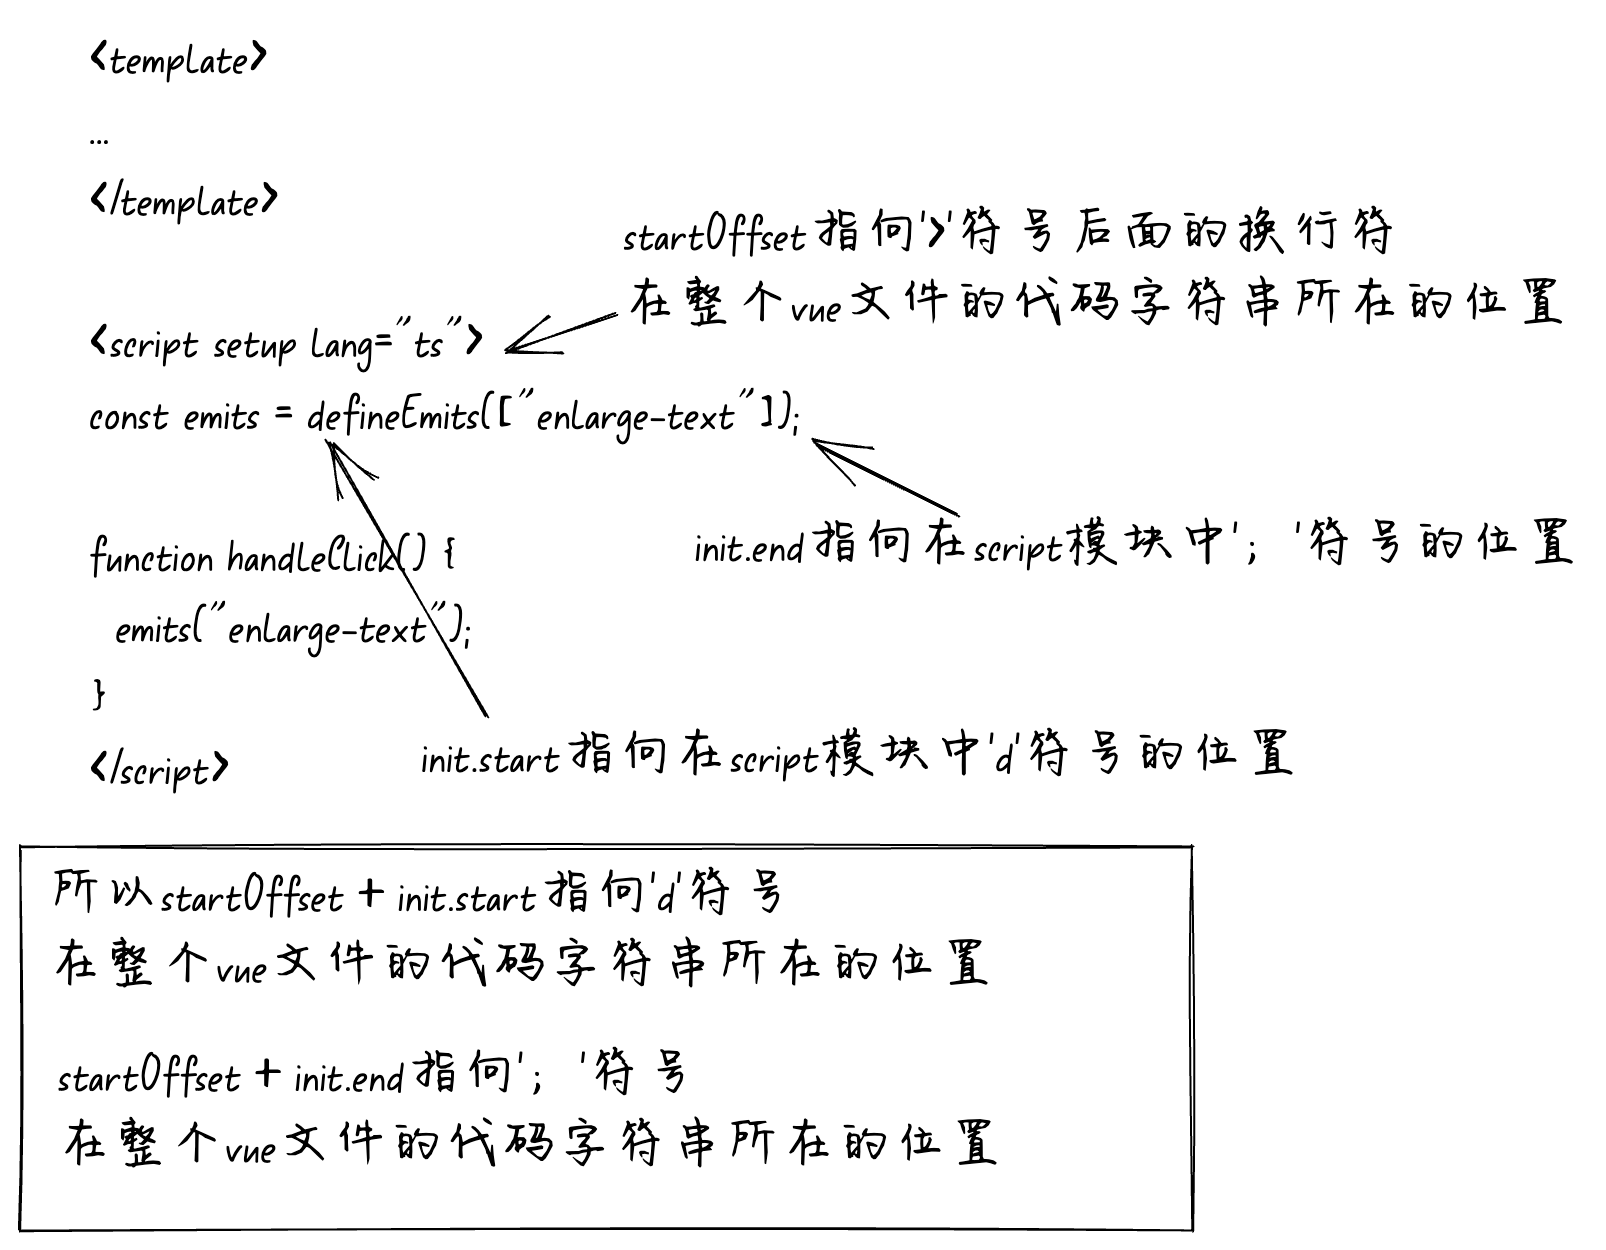 <template>
...
</template>
startOffset指向'>'符号后面的换行符
在整个vue文件的代码字符串所在的位置
<script setup lang="ts">
const emits = defineEmits(["enlarge-text"]);
init.end指向在script模块中';'符号的位置
function handleClick() {
emits("enlarge-text");
}
init.start指向在script模块中'd'符号的位置
</script>
所以startOffset + init.start指向'd'符号
在整个vue文件的代码字符串所在的位置
startOffset + init.end指向';'符号
在整个vue文件的代码字符串所在的位置